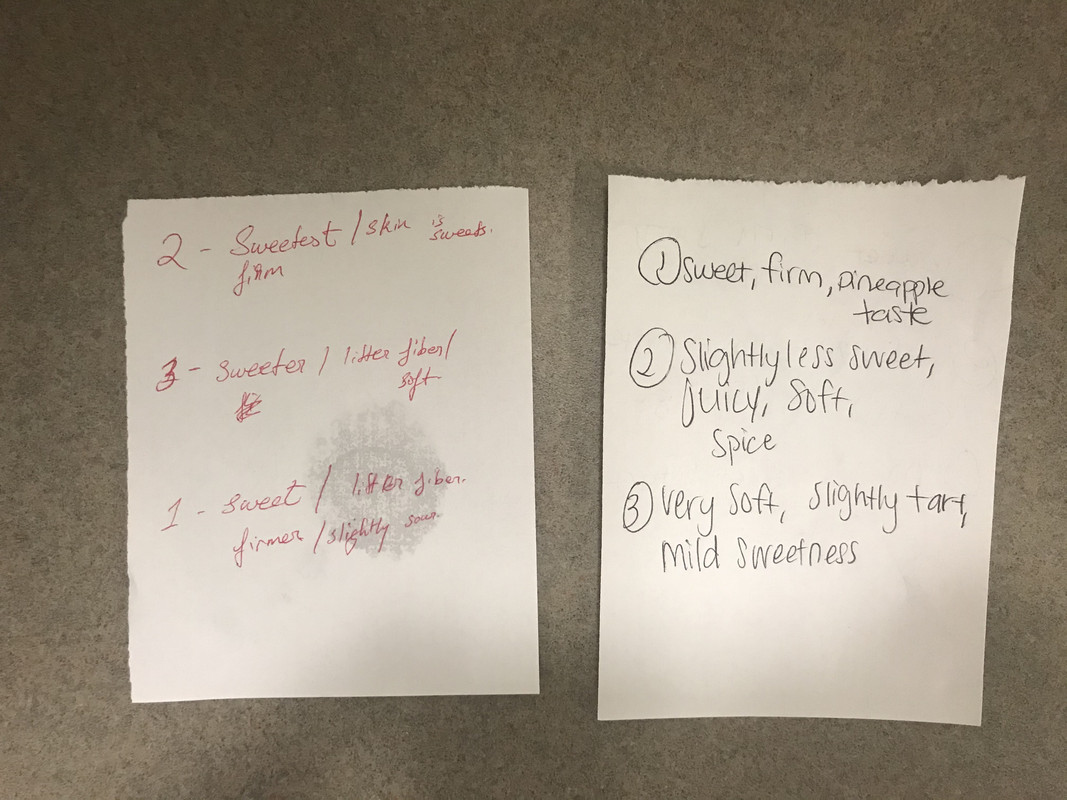 2 - Sweetest / skin is sweets.
firm
3 - sweeter / litter fiber/
soft
1 - sweet / litter fiber.
firmer / slightly sour.
① sweet, firm, pineapple
taste
② Slightly less sweet,
Juicy, soft,
spice
③ very soft, slightly tart,
mild sweetness